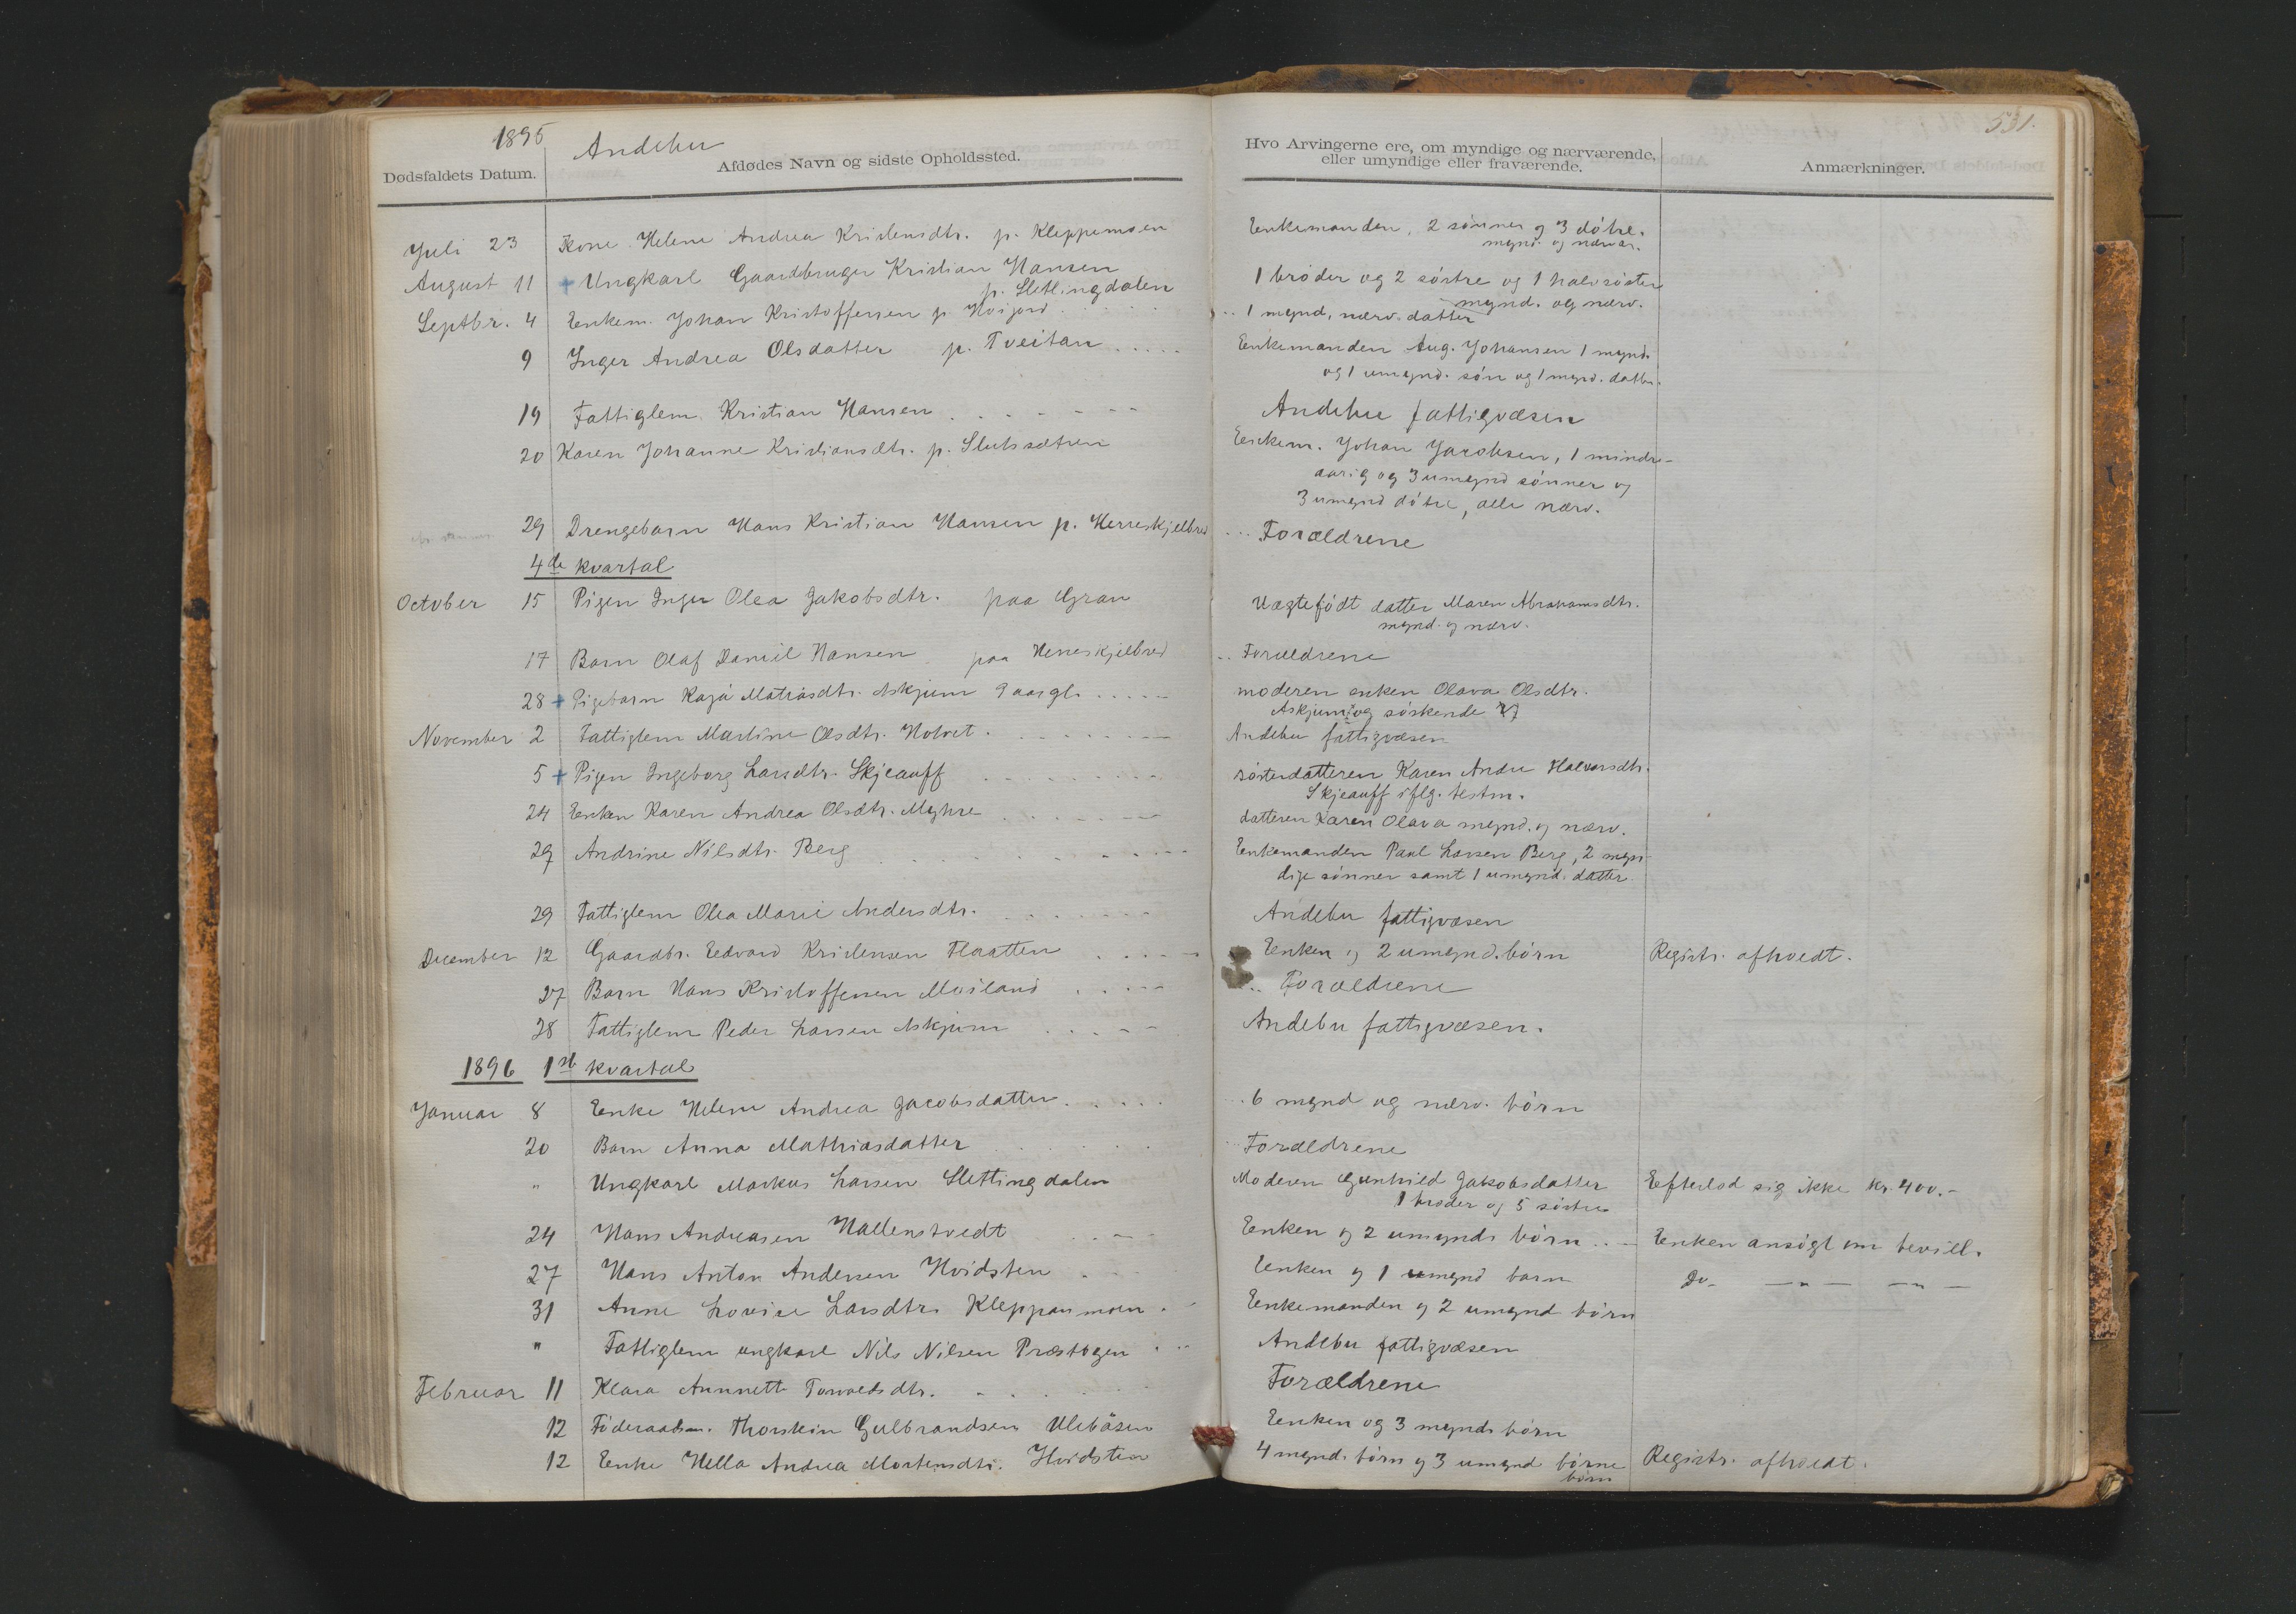 1895 Andebu
531.
Dødsfaldets Datum. Afdødes Navn og sidste Opholdssted. Hvo Arvingerne ere, om myndige og nærværende, eller umyndige eller fraværende. Anmærkninger.
Juli 23 Kone Helene Andrea Kristensdtr. p. Kleppemoen Enkemanden, 2 sønner og 3 døtre.
mynd. og nærvær.
August 11 + Ungkarl Gaardbruger Kristian Hansen 1 broder og 2 søstre og 1 halvsøster
p. Slettingdalen mynd. og nærv.
Septbr. 4 Enkem. Johan Kristoffersen p. Høijord 1 mynd. nærv. datter
9 Inger Andrea Olsdatter p. Tveitan Enkemanden Aug. Johansen 1 mynd.
og 1 umynd. søn og 1 mynd. datter.
19 Fattiglem Kristian Hansen Andebu fattigvæsen
20 Karen Johanne Kristiansdtr. p. Enkem. Johan Jacobsen, 1 mindre-
aarig og 3 umynd sønner og
3 umynd døtre, alle nærv.
29 Drengebarn Hans Kristian Hansen p. Herreskjelbred Forældrene
4de kvartal
October 15 Pigen Inger Olea Jakobsdtr. paa Gran Uægtefødt datter Maren Abrahamsdtr.
mynd. og nærv.
17 Barn Olaf Daniel Hansen paa Herreskjelbred Forældrene
28 + Pigebarn Kaja Matiasdtr. Askjum 9 aar gl. moderen enken Olava Olsdtr.
Askjum og søskende
November 2 Fattiglem Martine Olsdtr. Holvet Andebu fattigvæsen
5 + Pigen Ingeborg Larsdtr. Skjeauff søsterdatteren Karen Andre Halvorsdtr.
Skjeauff iflg. testm.
24 Enken Karen Andrea Olsdtr. Myhre datteren Karen Olava mynd. og nærv.
29 Andrine Nilsdtr. Berg Enkemanden Paul Larsen Berg, 2 myn-
dige sønner samt 1 umynd. datter
29 Fattiglem Olea Marie Andersdtr. Andebu fattigvæsen
December 12 Gaardbr. Edvard Kristensen Flaatten Enken og 2 umynd. børn Registr. afholdt.
27 Barn Hans Kristoffersen Møiland Forældrene
28 Fattiglem Peder Larsen Askjum Andebu fattigvæsen.
1896 1st kvartal
Januar 8 Enke Helene Andrea Jacobsdatter 6 mynd og nærv. børn
20 Barn Anna Mathiasdatter Forældrene
" Ungkarl Markus Larsen Slettingdalen Moderen Gunhild Jakobsdatter Efterlod sig ikke kr. 400.-
1 broder og 5 søstre
24 Hans Andreasen Hallenstvedt Enken og 2 umynd. børn Enken ansøgt om bevill.
27 Hans Anton Andersen Hvidsten Enken og 1 umynd barn Do. — " — — " —
31 Anne Lovise Larsdtr. Kleppanmoen Enkemanden og 2 umynd børn
" Fattiglem ungkarl Nils Nilsen Præstbyen Andebu fattigvæsen
Februar 11 Klara Annett Torvaldsdtr. Forældrene
12 Føderaadsm. Thorstein Gulbrandsen Ulebåsen Enken og 3 mynd. børn
12 Enke Hella Andrea Mortensdtr. Hvidsten 4 mynd. børn og 3 umynd børne Registr. afholdt.
børn